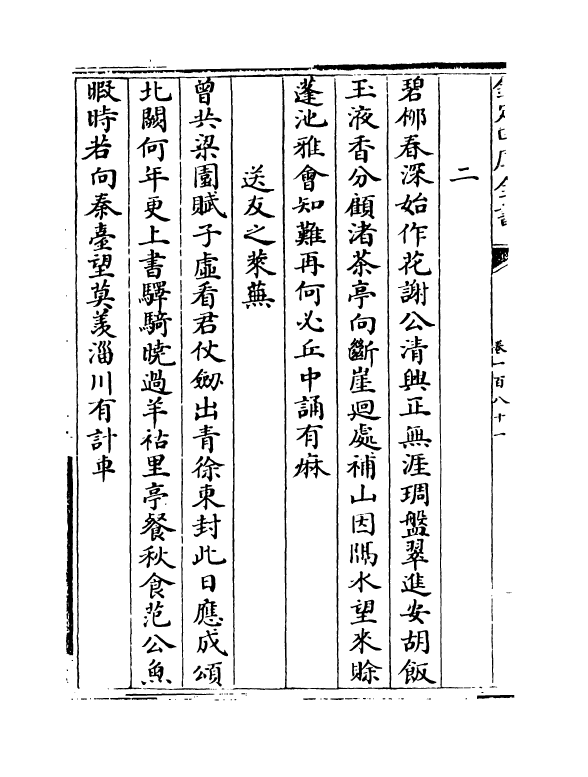 欽定四庫全書
卷一百八十一
二
碧柳春深始作花謝公清興正無涯琱盤翠進安胡飯
玉液香分顧渚茶亭向斷崖迴處補山因隔水望來賒
蓬池雅會知難再何必丘中誦有麻
送友之萊蕪
曾共梁園賦子虛看君仗劒出青徐東封此日應成頌
北闕何年更上書驛騎曉過羊祜里亭餐秋食范公魚
暇時若向秦臺望莫羨淄川有計車